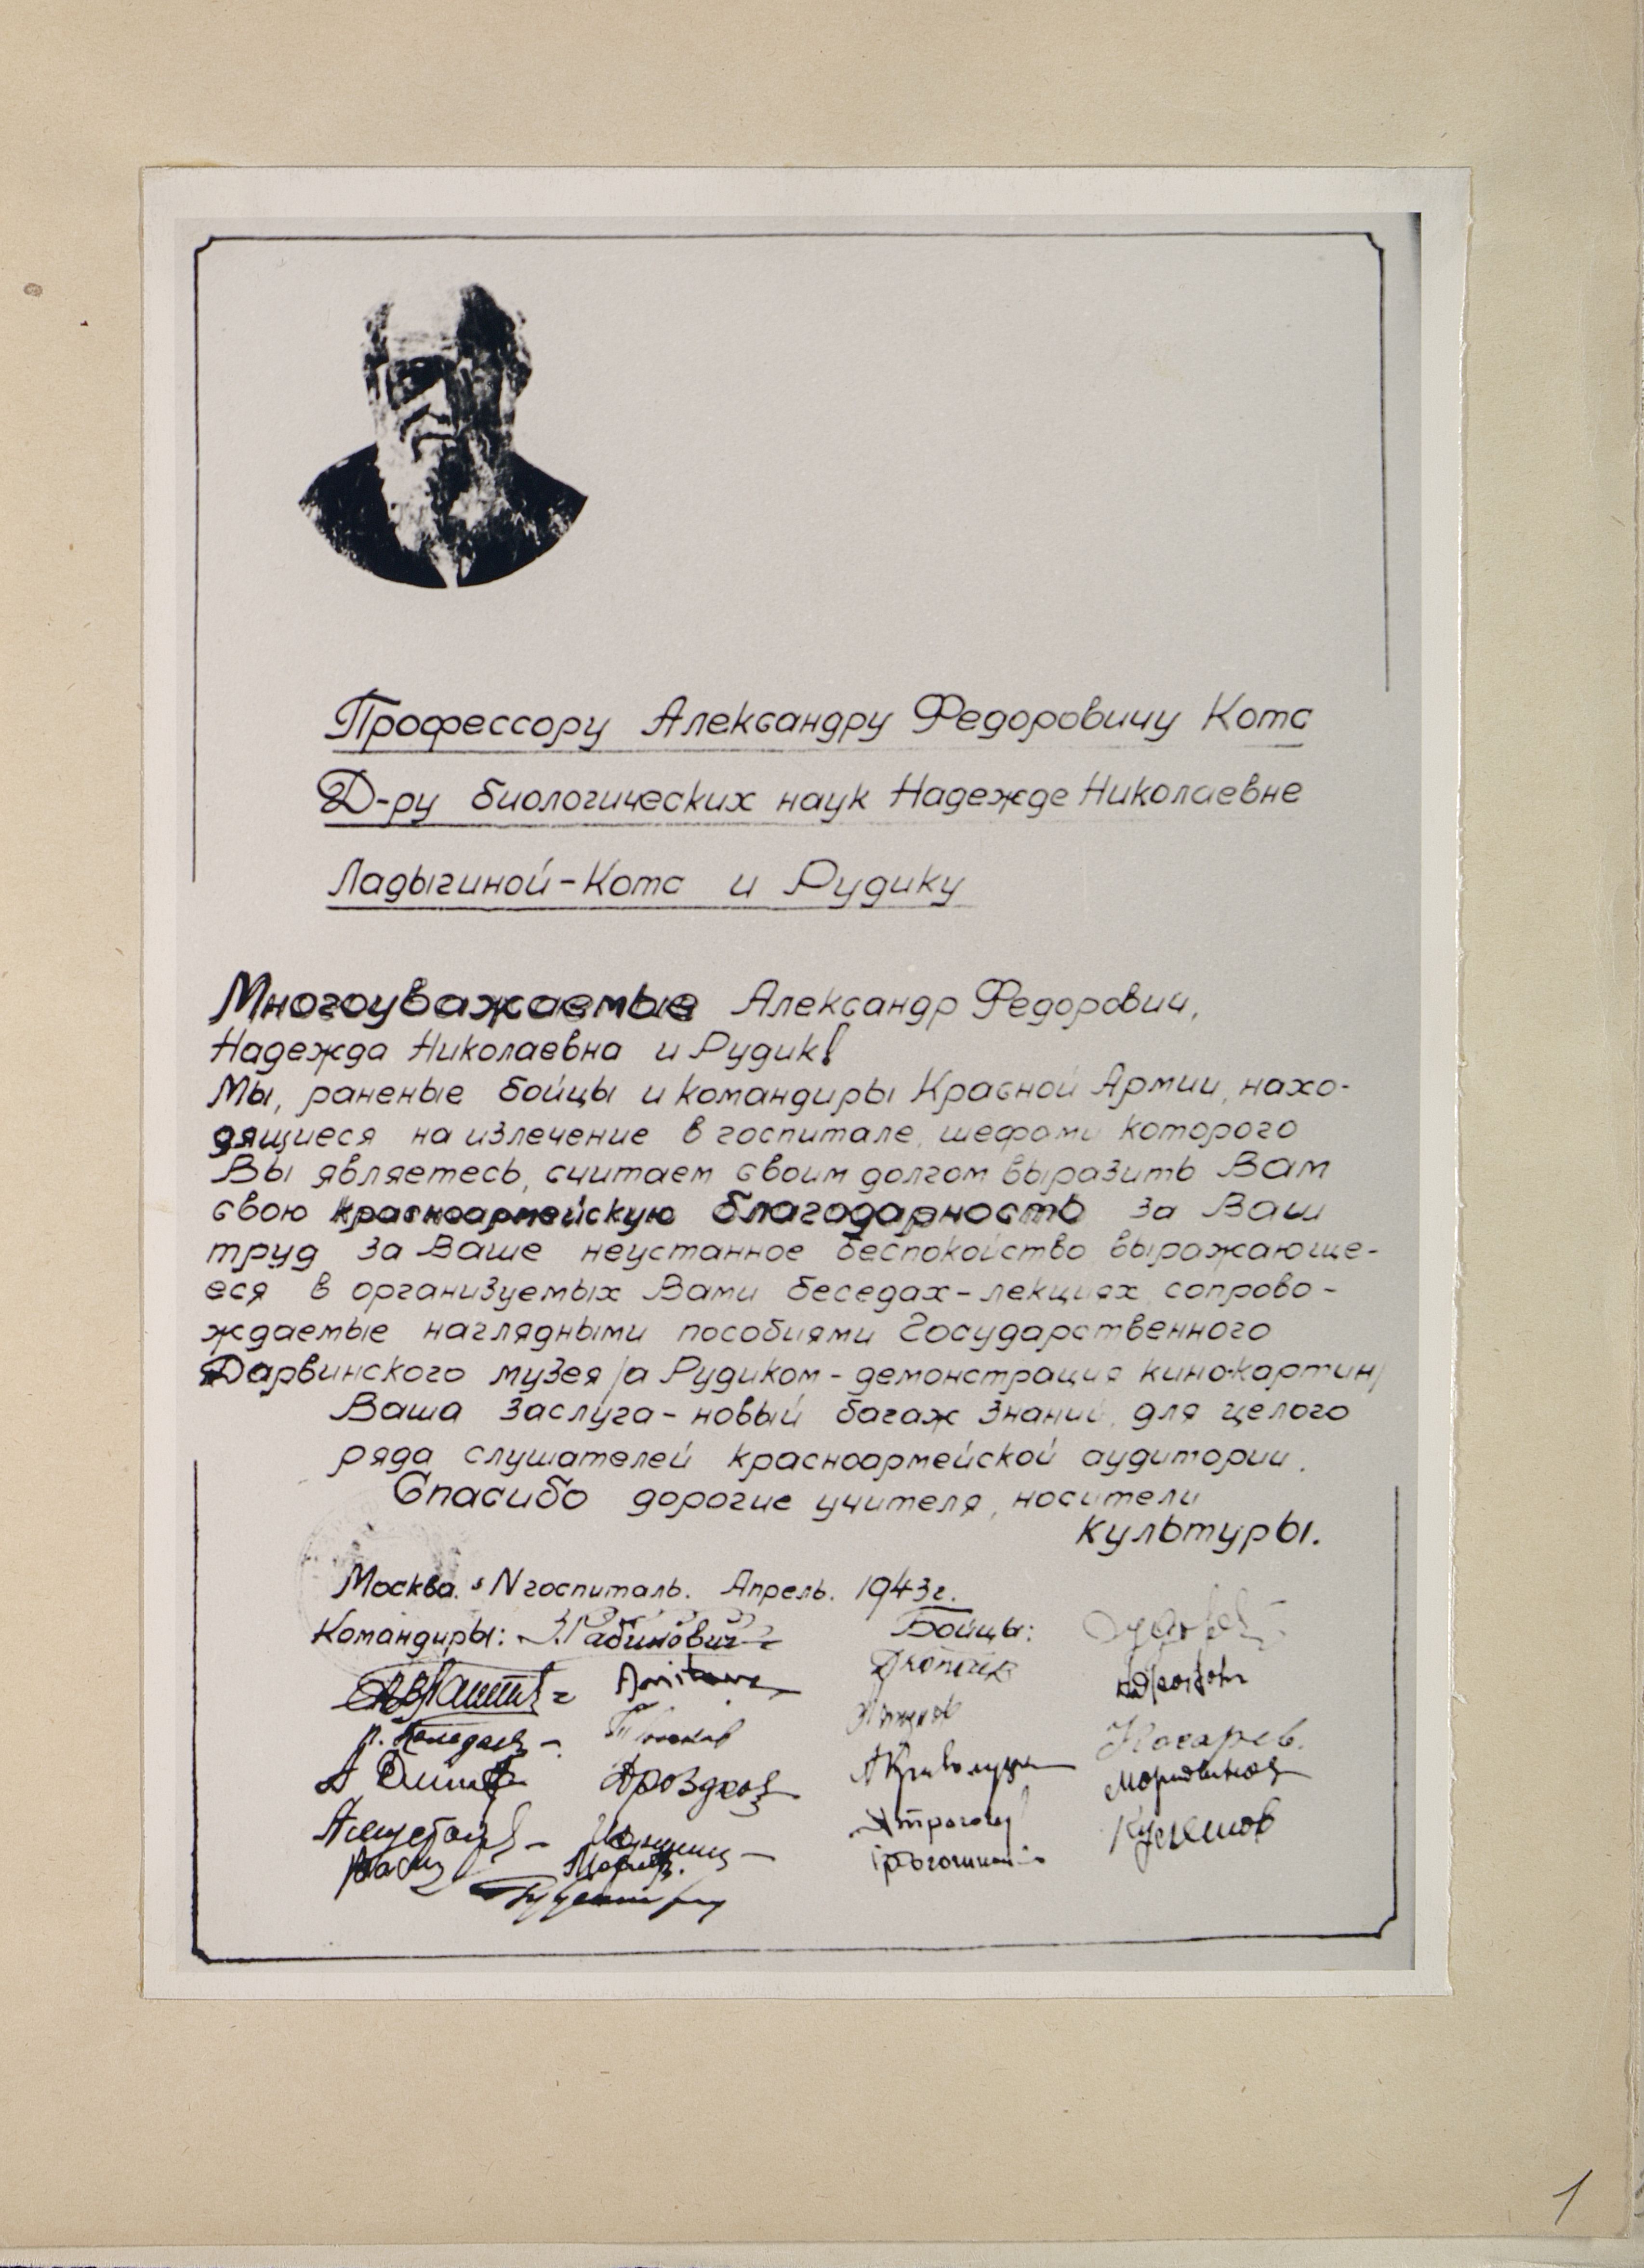 Профессору Александру Федоровичу Котс
Д-ру биологических наук Надежде Николаевне
Ладыгиной-Котс и Рудику
Многоуважаемые Александр Федорович,
Надежда Николаевна и Рудик!
Мы, раненые бойцы и командиры Красной Армии, нахо-
дящиеся на излечение в госпитале, шефами которого
Вы являетесь, считаем своим долгом выразить Вам
свою красноармейскую благодарность за Ваш
труд за Ваше неустанное беспокойство выражающе-
еся в организуемых Вами беседах-лекциях, сопрово-
ждаемые наглядными пособиями Государственного
Дарвинского музея /а Рудиком - демонстрация кинокартин/
Ваша заслуга - новый багаж знаний, для целого
ряда слушателей красноармейской аудитории.
Спасибо дорогие учителя, носители
культуры.
Москва. N госпиталь. Апрель. 1943г.
Командиры: З.Рабинович Бойцы:
Кочарев.
Дроздков А Криволуцки Мордвинов
Кузнецов
1